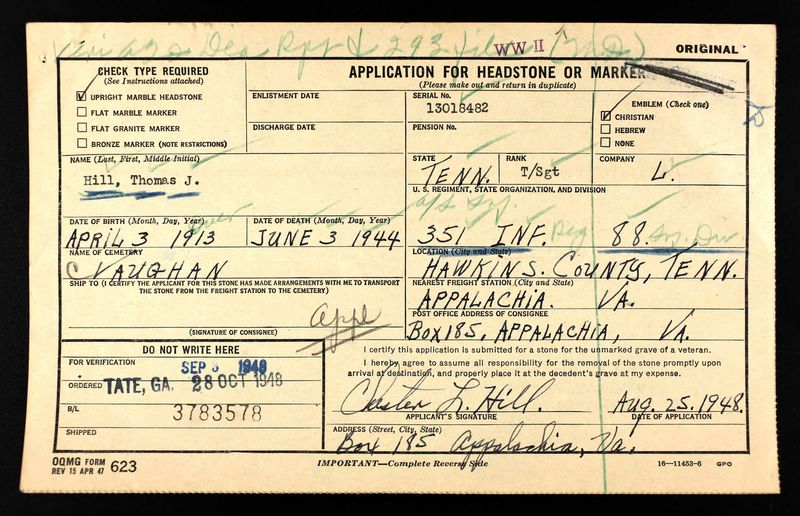 WW II
ORIGINAL
CHECK TYPE REQUIRED
(See Instructions attached)
UPRIGHT MARBLE HEADSTONE
FLAT MARBLE MARKER
FLAT GRANITE MARKER
BRONZE MARKER (NOTE RESTRICTIONS)
APPLICATION FOR HEADSTONE OR MARKER
(Please make out and return in duplicate)
ENLISTMENT DATE
DISCHARGE DATE
SERIAL No.
13018482
PENSION No.
EMBLEM (Check one)
CHRISTIAN
HEBREW
NONE
NAME (Last, First, Middle Initial)
Hill, Thomas J.
STATE
TENN.
RANK
T/Sgt
COMPANY
L.
U. S. REGIMENT, STATE ORGANIZATION, AND DIVISION
351 INF. 88.
DATE OF BIRTH (Month, Day, Year)
APRIL 3 1913
DATE OF DEATH (Month, Day, Year)
JUNE 3 1944
NAME OF CEMETERY
VAUGHAN
LOCATION (City and State)
HAWKINS. COUNTY, TENN.
SHIP TO (I CERTIFY THE APPLICANT FOR THIS STONE HAS MADE ARRANGEMENTS WITH ME TO TRANSPORT
THE STONE FROM THE FREIGHT STATION TO THE CEMETERY)
NEAREST FREIGHT STATION (City and State)
APPALACHIA. VA.
appl
(SIGNATURE OF CONSIGNEE)
POST OFFICE ADDRESS OF CONSIGNEE
BOX 185, APPALACHIA, VA.
DO NOT WRITE HERE
FOR VERIFICATION
SEP 1948
ORDERED
TATE, GA. 28 OCT 1948
B/L
3783578
SHIPPED
I certify this application is submitted for a stone for the unmarked grave of a veteran.
I hereby agree to assume all responsibility for the removal of the stone promptly upon
arrival at destination, and properly place it at the decedent's grave at my expense.
Chester L. Hill. Aug. 25, 1948.
APPLICANT'S SIGNATURE
DATE OF APPLICATION
ADDRESS (Street, City, State)
Box 185 Appalachia, Va.
OQMG FORM
REV 15 APR 47 623
IMPORTANT—Complete Reverse Side
16—11453-6 GPO